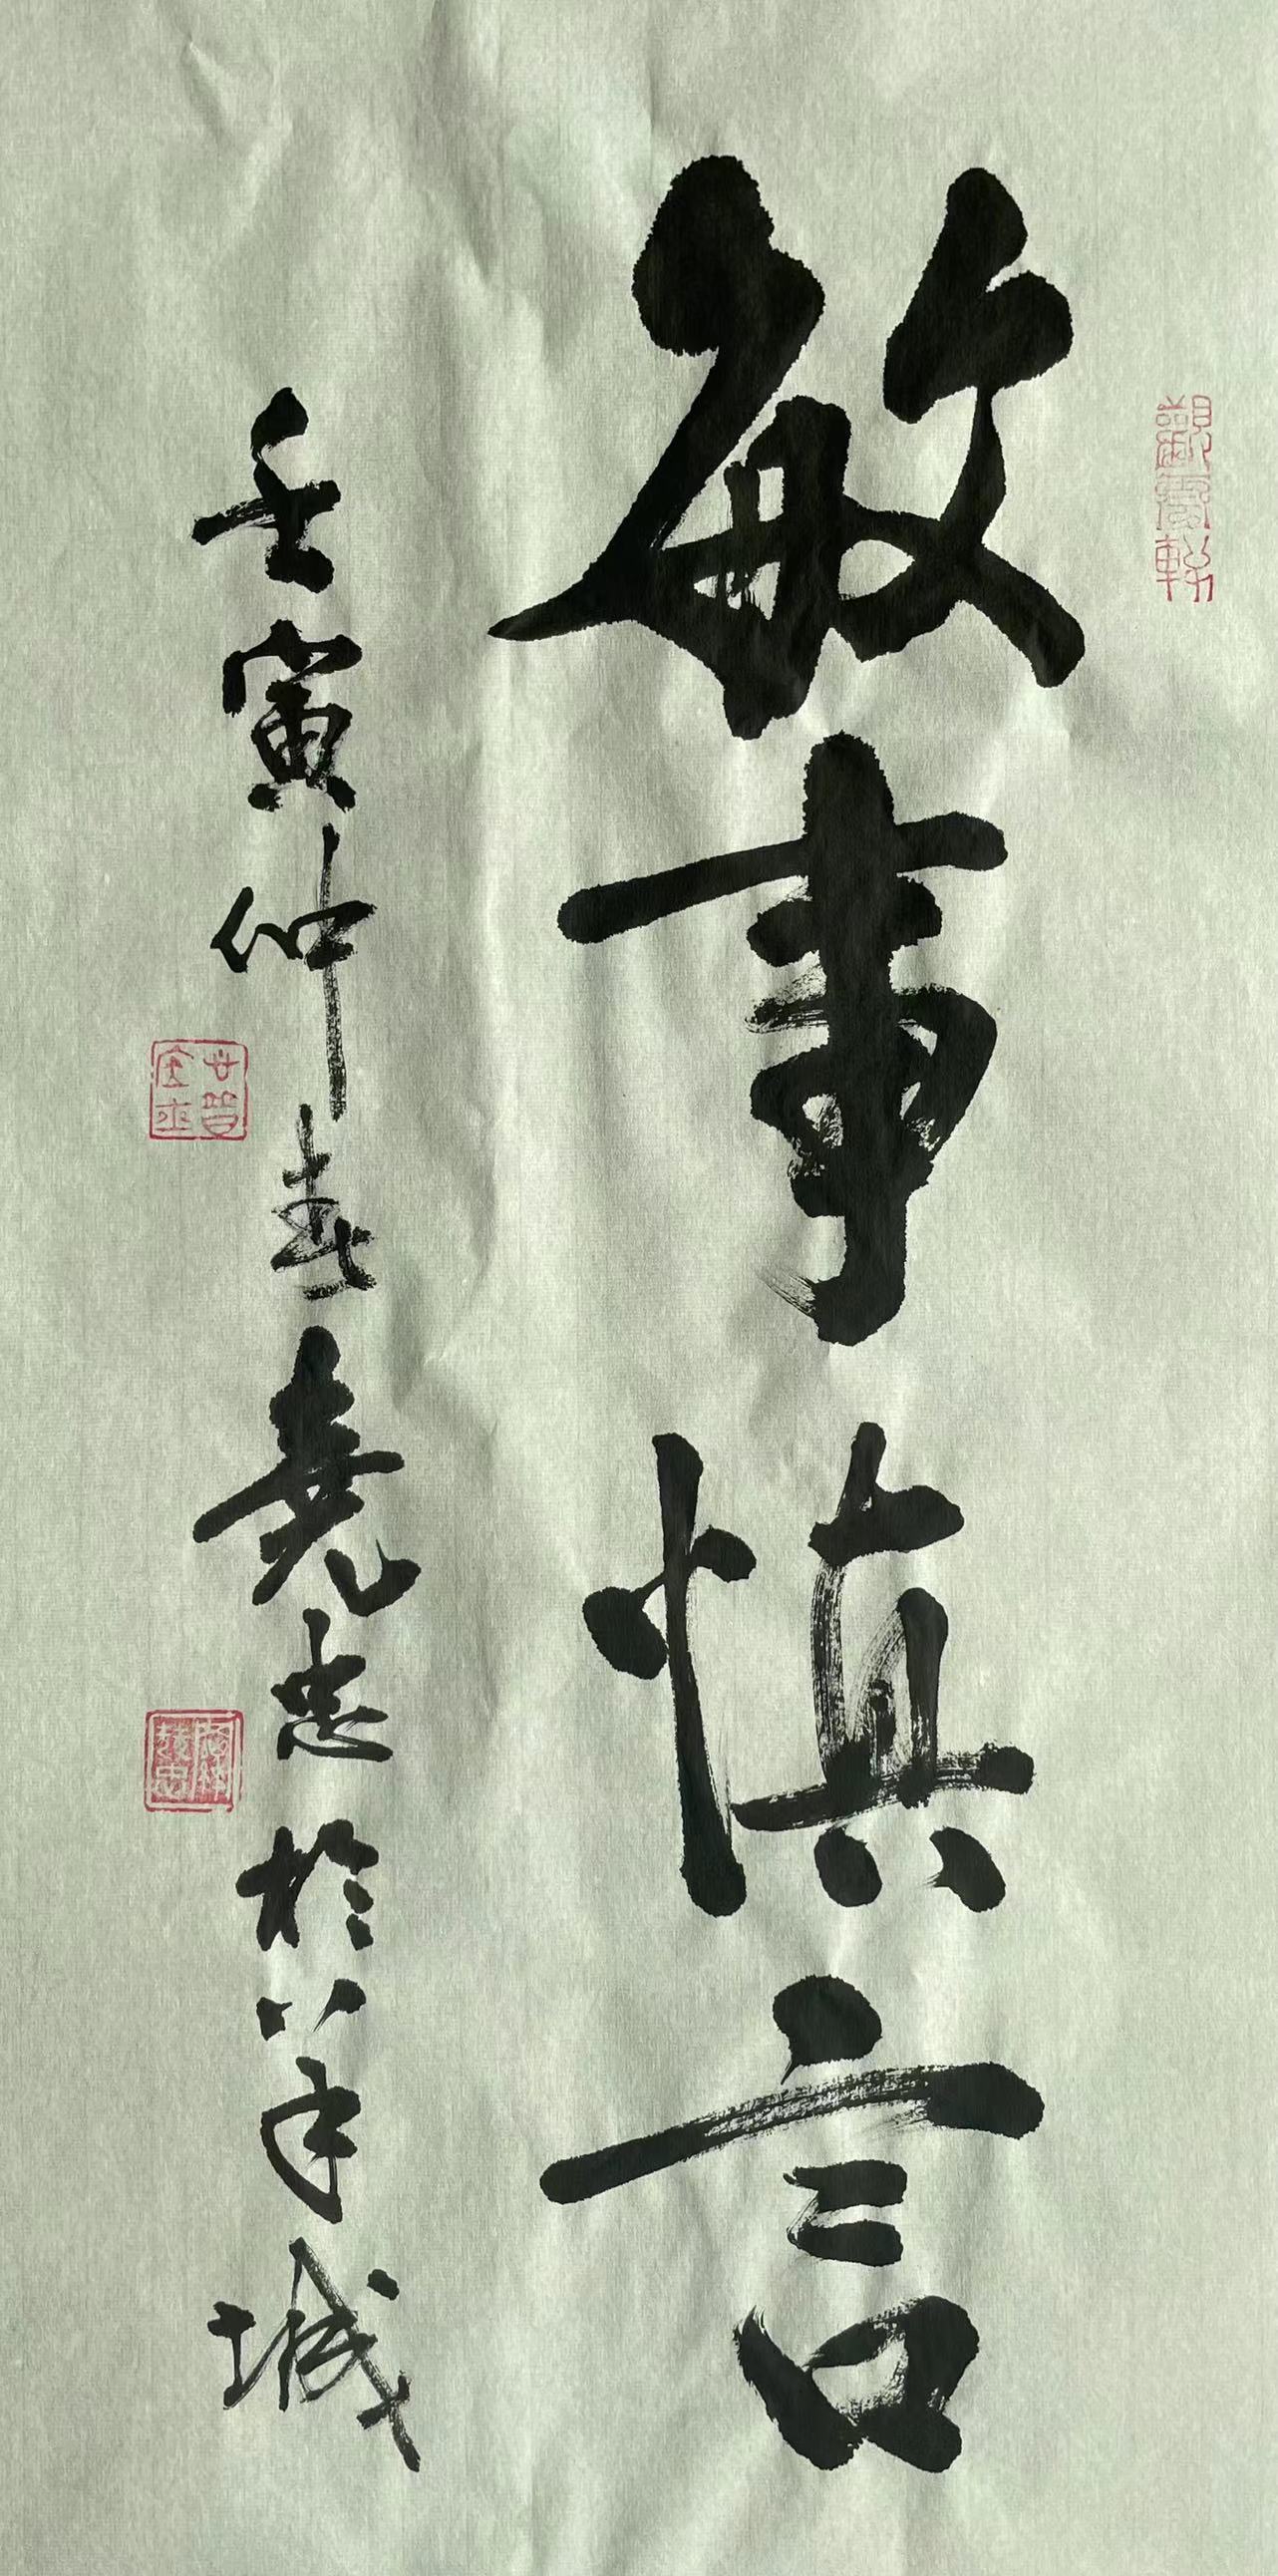 敏事慎言
壬寅仲春堯忠於羊城